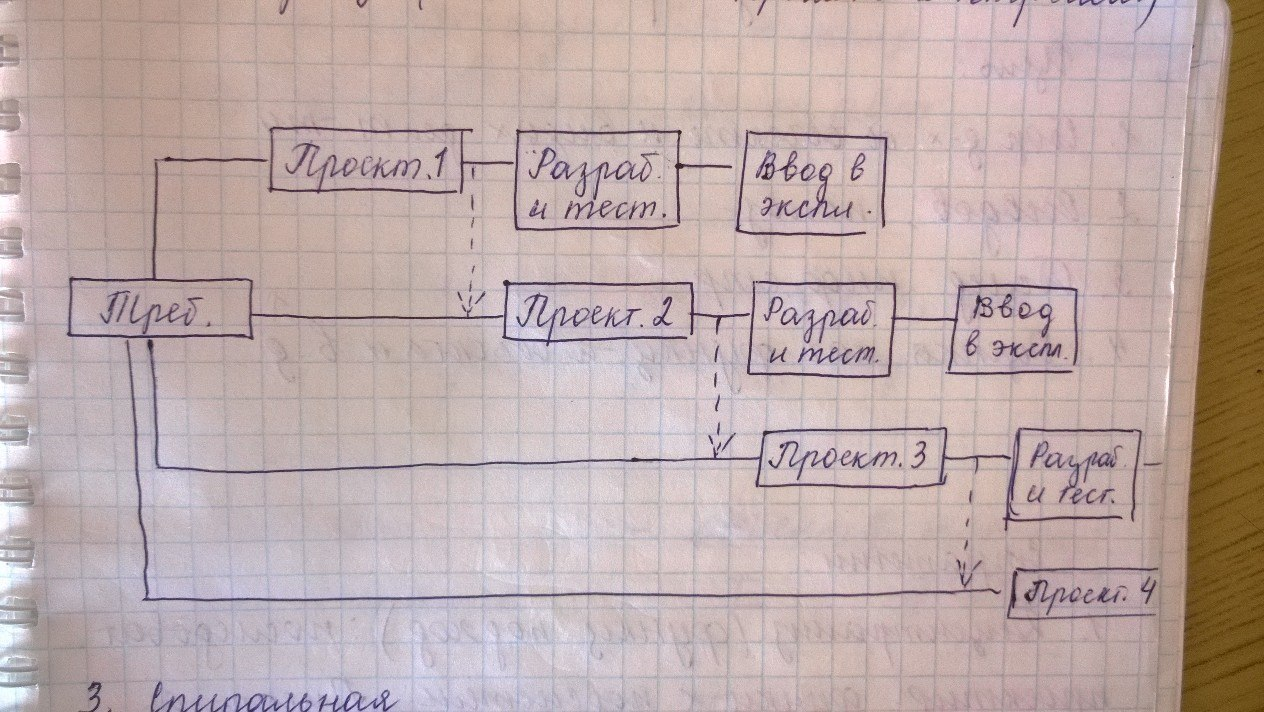 Проект.1
Разраб.
и тест.
Ввод в
экспл.
Треб.
Проект.2
Разраб.
и тест.
Ввод
в экспл.
Проект.3
Разраб.
и тест.
Проект.4
3. Спиральная